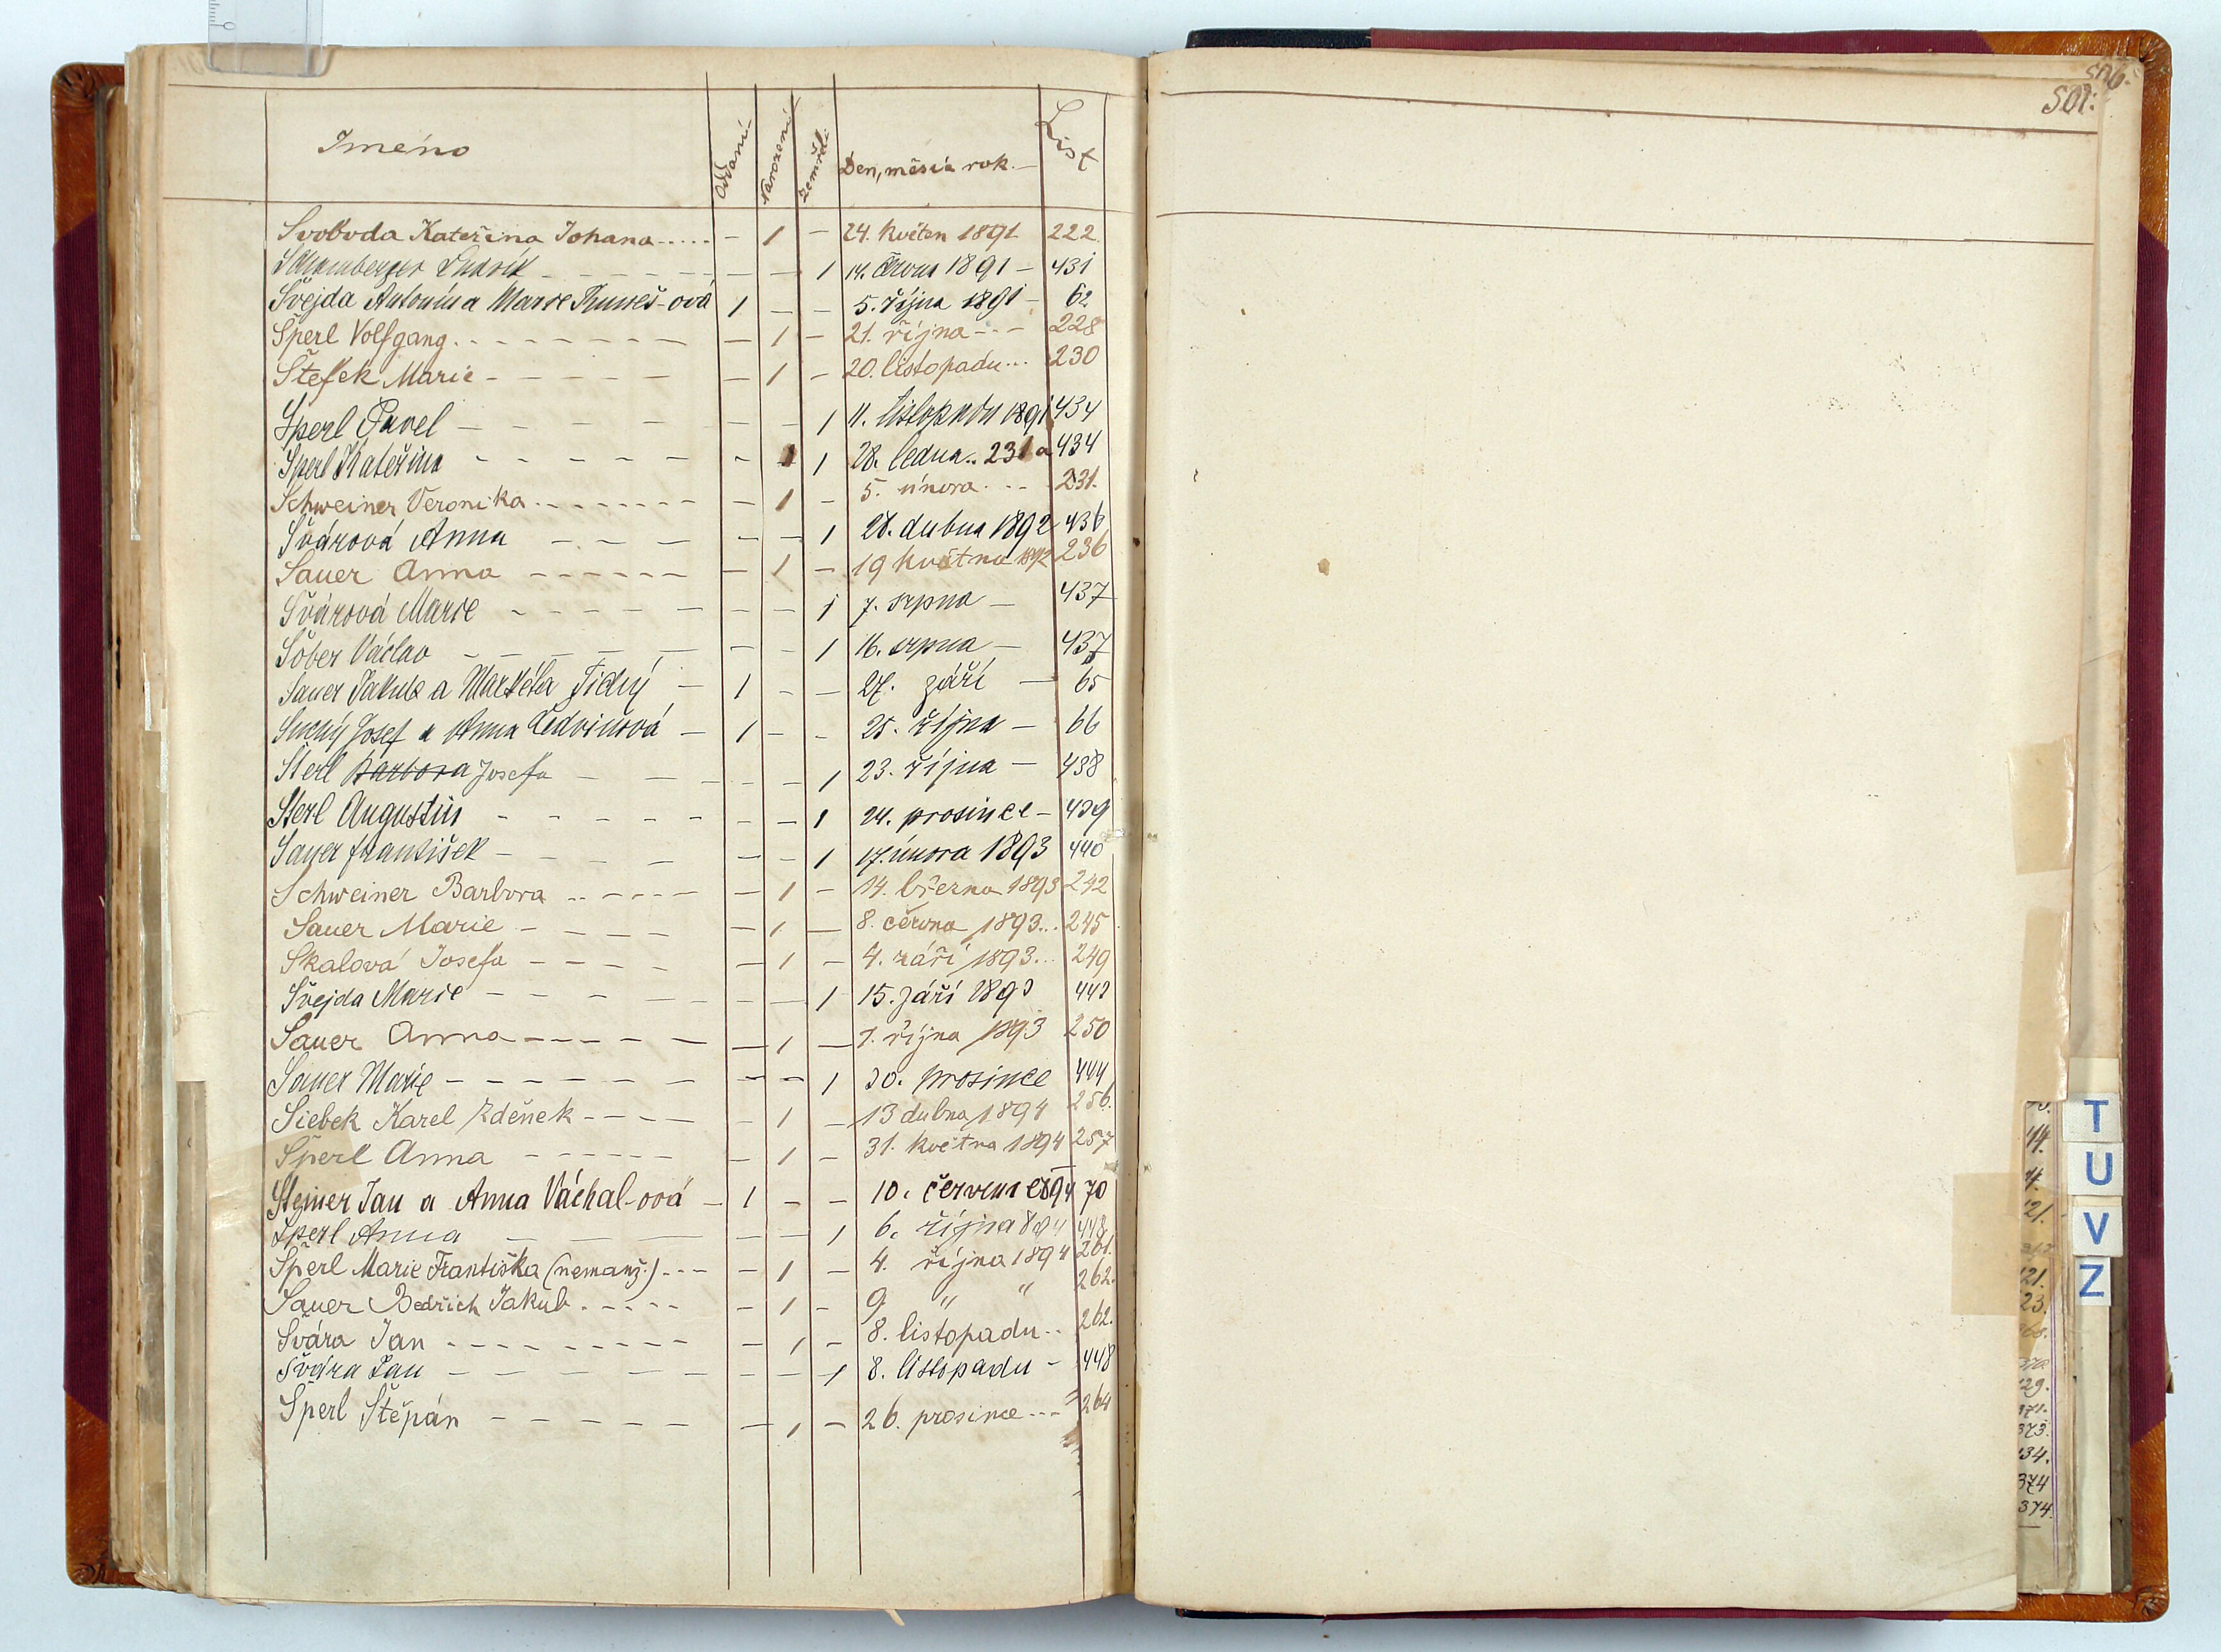 Jméno Oddaní Narození Zemřel. Den, měsíc rok. List
Svoboda Kateřina Johana..... – 1 – 24. květen 1891 222.
Ludvík – – – – – – 1 14. června 1891 – 431
Švejda Antonín a Marie Kuneš-ová 1 – – 5. října 1891 – 62
Šperl Volfgang. – – – – – 1 – 21. října – – – 228
Štefek Marie – – – – – 1 – 20. listopadu... 230
Šperl Pavel – – – – – – 1 11. listopadu 1891 434
Šperl Kateřina – – – – – 1 1 28. ledna.. 231 a 434
Schweiner Veronika – – – – 1 – 5. února . – – 231.
Švárová Anna – – – – – 1 28. dubna 1892 436
Sauer Anna – – – – – 1 – 19 května 1892 236
Švárová Marie – – – – – – 1 7. srpna – 437
Šober Václav – – – – – – 1 16. srpna – 437
Sauer Jakub a Markéta Fidrý – 1 – – 27. září – 65
Suchý Josef a Anna Ledvinová – 1 – – 25. října – 66
Šterl Barbora Josefa – – – – – 1 23. října – 438
Šterl Augustin – – – – – – 1 24. prosince – 439
Sauer František – – – – – – 1 17. února 1893 440
Schweiner Barbora – – – – – 1 – 14. března 1893 242
Sauer Marie – – – – – 1 – 8. června 1893... 245
Skalová Josefa – – – – – 1 – 4. září 1893... 249
Švejda Marie – – – – – – 1 15. září 1893 443
Sauer Anna – – – – – 1 – 7. října 1893 250
Sauer Marie – – – – – – – 1 30. prosince 444
Siebek Karel Zděnek – – – – – 1 – 13 dubna 1894 256.
Šperl Anna – – – – – 1 – 31. května 1894 257
Steiner Jan a Anna Váchal-ová – 1 – – 10. června 1894 70
Šperl Anna – – – – – 1 6. října 894 448
Šperl Marie Františka (nemanž.) – – – – 1 – 4. října 1894 261.
Sauer Bedřich Jakub. – – – – – 1 – 9 " " 262.
Švára Jan – – – – – – 1 – 8. listopadu.. 262.
Švára Jan – – – – – – – 1 8. listopadu – 448
Šperl Štěpán – – – – – – 1 – 26. prosince... 264
506.
501.
T
U
V
Z
44.
4.
21.
21.
23.
29.
371.
373.
134.
374
374.